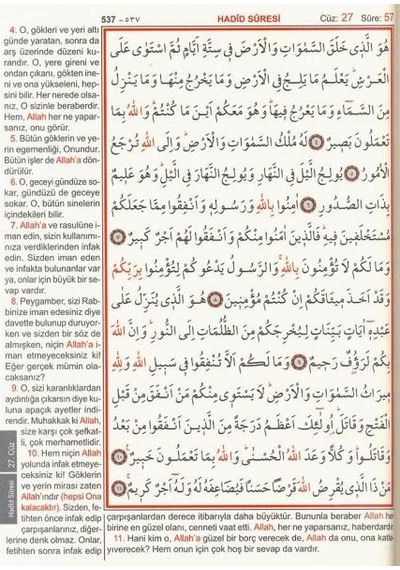 537 - ٥٣٧
HADÎD SÛRESİ
Cüz: 27 Sûre: 57
4. O, gökleri ve yeri altı
günde yaratan, sonra da
arş üzerinde düzeni ku-
randır. O, yere gireni ve
ondan çıkanı, gökten ine-
ni ve ona yükseleni, hep-
sini bilir. Her nerede olsa-
nız, O sizinle beraberdir.
Hem, Allah her ne yapar-
sanız, onu görür.
5. Bütün göklerin ve ye-
rin egemenliği, Onundur.
Bütün işler de Allah'a dön-
dürülür.
6. O, geceyi gündüze so-
kar, gündüzü de geceye
sokar. O, bütün sinelerin
içindekileri bilir.
7. Allah'a ve rasulüne i-
man edin, sizin kullanımı-
nıza verdiklerinden infak
edin. Sizden iman eden
ve infakta bulunanlar var
ya, onlar için büyük bir se-
vap vardır.
8. Peygamber, sizi Rab-
binize iman edesiniz diye
davette bulunup duruyor-
ken ve sizden bir söz de
almışken, niçin Allah'a i-
man etmeyeceksiniz ki!
Eğer gerçek mümin ola-
caksanız?
9. O, sizi karanlıklardan
aydınlığa çıkarsın diye ku-
luna apaçık ayetler indi-
rendir. Muhakkak ki Allah,
size karşı çok şefkat-
li, çok merhametlidir.
10. Hem niçin Allah
yolunda infak etmeye-
ceksiniz ki! Göklerin
ve yerin mirası zaten
Allah'ındır (hepsi Ona
kalacaktır). Sizden, fe-
tihten önce infak edip
çarpışanlarınız, diğer-
lerine denk olmaz. Onlar,
fetihten sonra infak edip
هُوَ الَّذِي خَلَقَ السَّمٰوَاتِ وَالْاَرْضَ فِي سِتَّةِ اَيَّامٍ ثُمَّ اسْتَوٰى عَلَى
الْعَرْشِ يَعْلَمُ مَا يَلِجُ فِي الْاَرْضِ وَمَا يَخْرُجُ مِنْهَا وَمَا يَنْزِلُ
مِنَ السَّمَاءِ وَمَا يَعْرُجُ فِيهَا وَهُوَ مَعَكُمْ اَيْنَ مَا كُنْتُمْ وَاللّٰهُ بِمَا
تَعْمَلُونَ بَصِيرٌ ٤ لَهُ مُلْكُ السَّمٰوَاتِ وَالْاَرْضِ وَاِلَى اللّٰهِ تُرْجَعُ
الْاُمُورُ ٥ يُولِجُ الَّيْلَ فِي النَّهَارِ وَيُولِجُ النَّهَارَ فِي الَّيْلِ وَهُوَ عَلِيمٌ
بِذَاتِ الصُّدُورِ ٦ اٰمِنُوا بِاللّٰهِ وَرَسُولِهِ وَاَنْفِقُوا مِمَّا جَعَلَكُمْ
مُسْتَخْلَفِينَ فِيهِ فَالَّذِينَ اٰمَنُوا مِنْكُمْ وَاَنْفَقُوا لَهُمْ اَجْرٌ كَبِيرٌ ٧
وَمَا لَكُمْ لَا تُؤْمِنُونَ بِاللّٰهِ وَالرَّسُولُ يَدْعُوكُمْ لِتُؤْمِنُوا بِرَبِّكُمْ
وَقَدْ اَخَذَ مِيثَاقَكُمْ اِنْ كُنْتُمْ مُؤْمِنِينَ ٨ هُوَ الَّذِي يُنَزِّلُ عَلٰى
عَبْدِهِ اٰيَاتٍ بَيِّنَاتٍ لِيُخْرِجَكُمْ مِنَ الظُّلُمَاتِ اِلَى النُّورِ وَاِنَّ اللّٰهَ
بِكُمْ لَرَؤُفٌ رَحِيمٌ ٩ وَمَا لَكُمْ اَلَّا تُنْفِقُوا فِي سَبِيلِ اللّٰهِ وَلِلّٰهِ
مِيرَاثُ السَّمٰوَاتِ وَالْاَرْضِ لَا يَسْتَوِي مِنْكُمْ مَنْ اَنْفَقَ مِنْ قَبْلِ
الْفَتْحِ وَقَاتَلَ اُولٰئِكَ اَعْظَمُ دَرَجَةً مِنَ الَّذِينَ اَنْفَقُوا مِنْ بَعْدُ
وَقَاتَلُوا وَكُلًّا وَعَدَ اللّٰهُ الْحُسْنٰى وَاللّٰهُ بِمَا تَعْمَلُونَ خَبِيرٌ ١٠
مَنْ ذَا الَّذِي يُقْرِضُ اللّٰهَ قَرْضًا حَسَنًا فَيُضَاعِفَهُ لَهُ وَلَهُ اَجْرٌ كَرِيمٌ ١١
çarpışanlardan derece itibarıyla daha büyüktür. Bununla beraber Allah her
birine en güzel olanı, cenneti vaat etti. Allah, her ne yaparsanız, haberdardır.
11. Hani kim o, Allah'a güzel bir borç verecek de, Allah da onu, ona katla
yıverecek? Hem onun için çok hoş bir sevap da vardır.
Hadîd Sûresi
27. Cüz